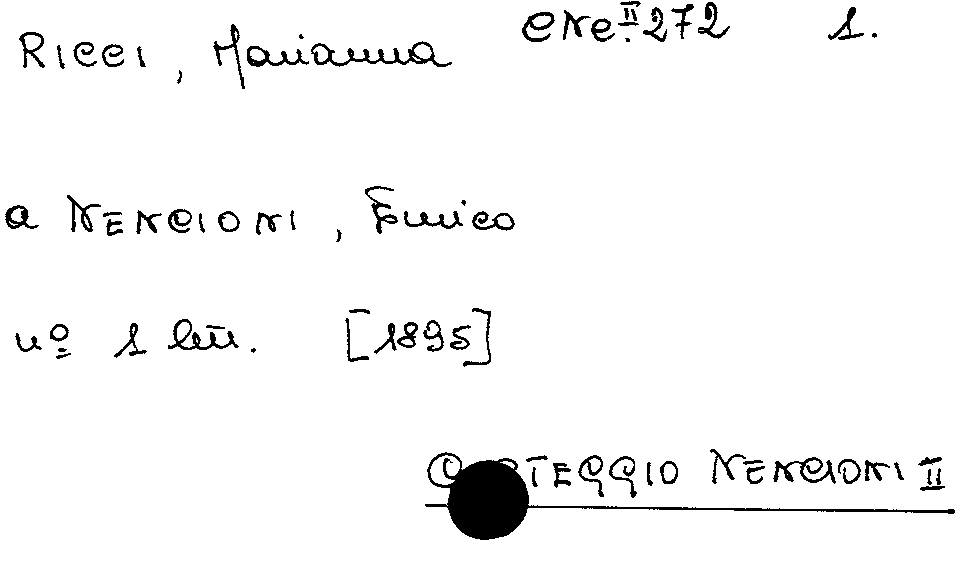 RICCI, Marianna CNc.II.272 1.
a NENCIONI, Enrico
nº 1 lett. [1895]
C TEGGIO NENCIONI II